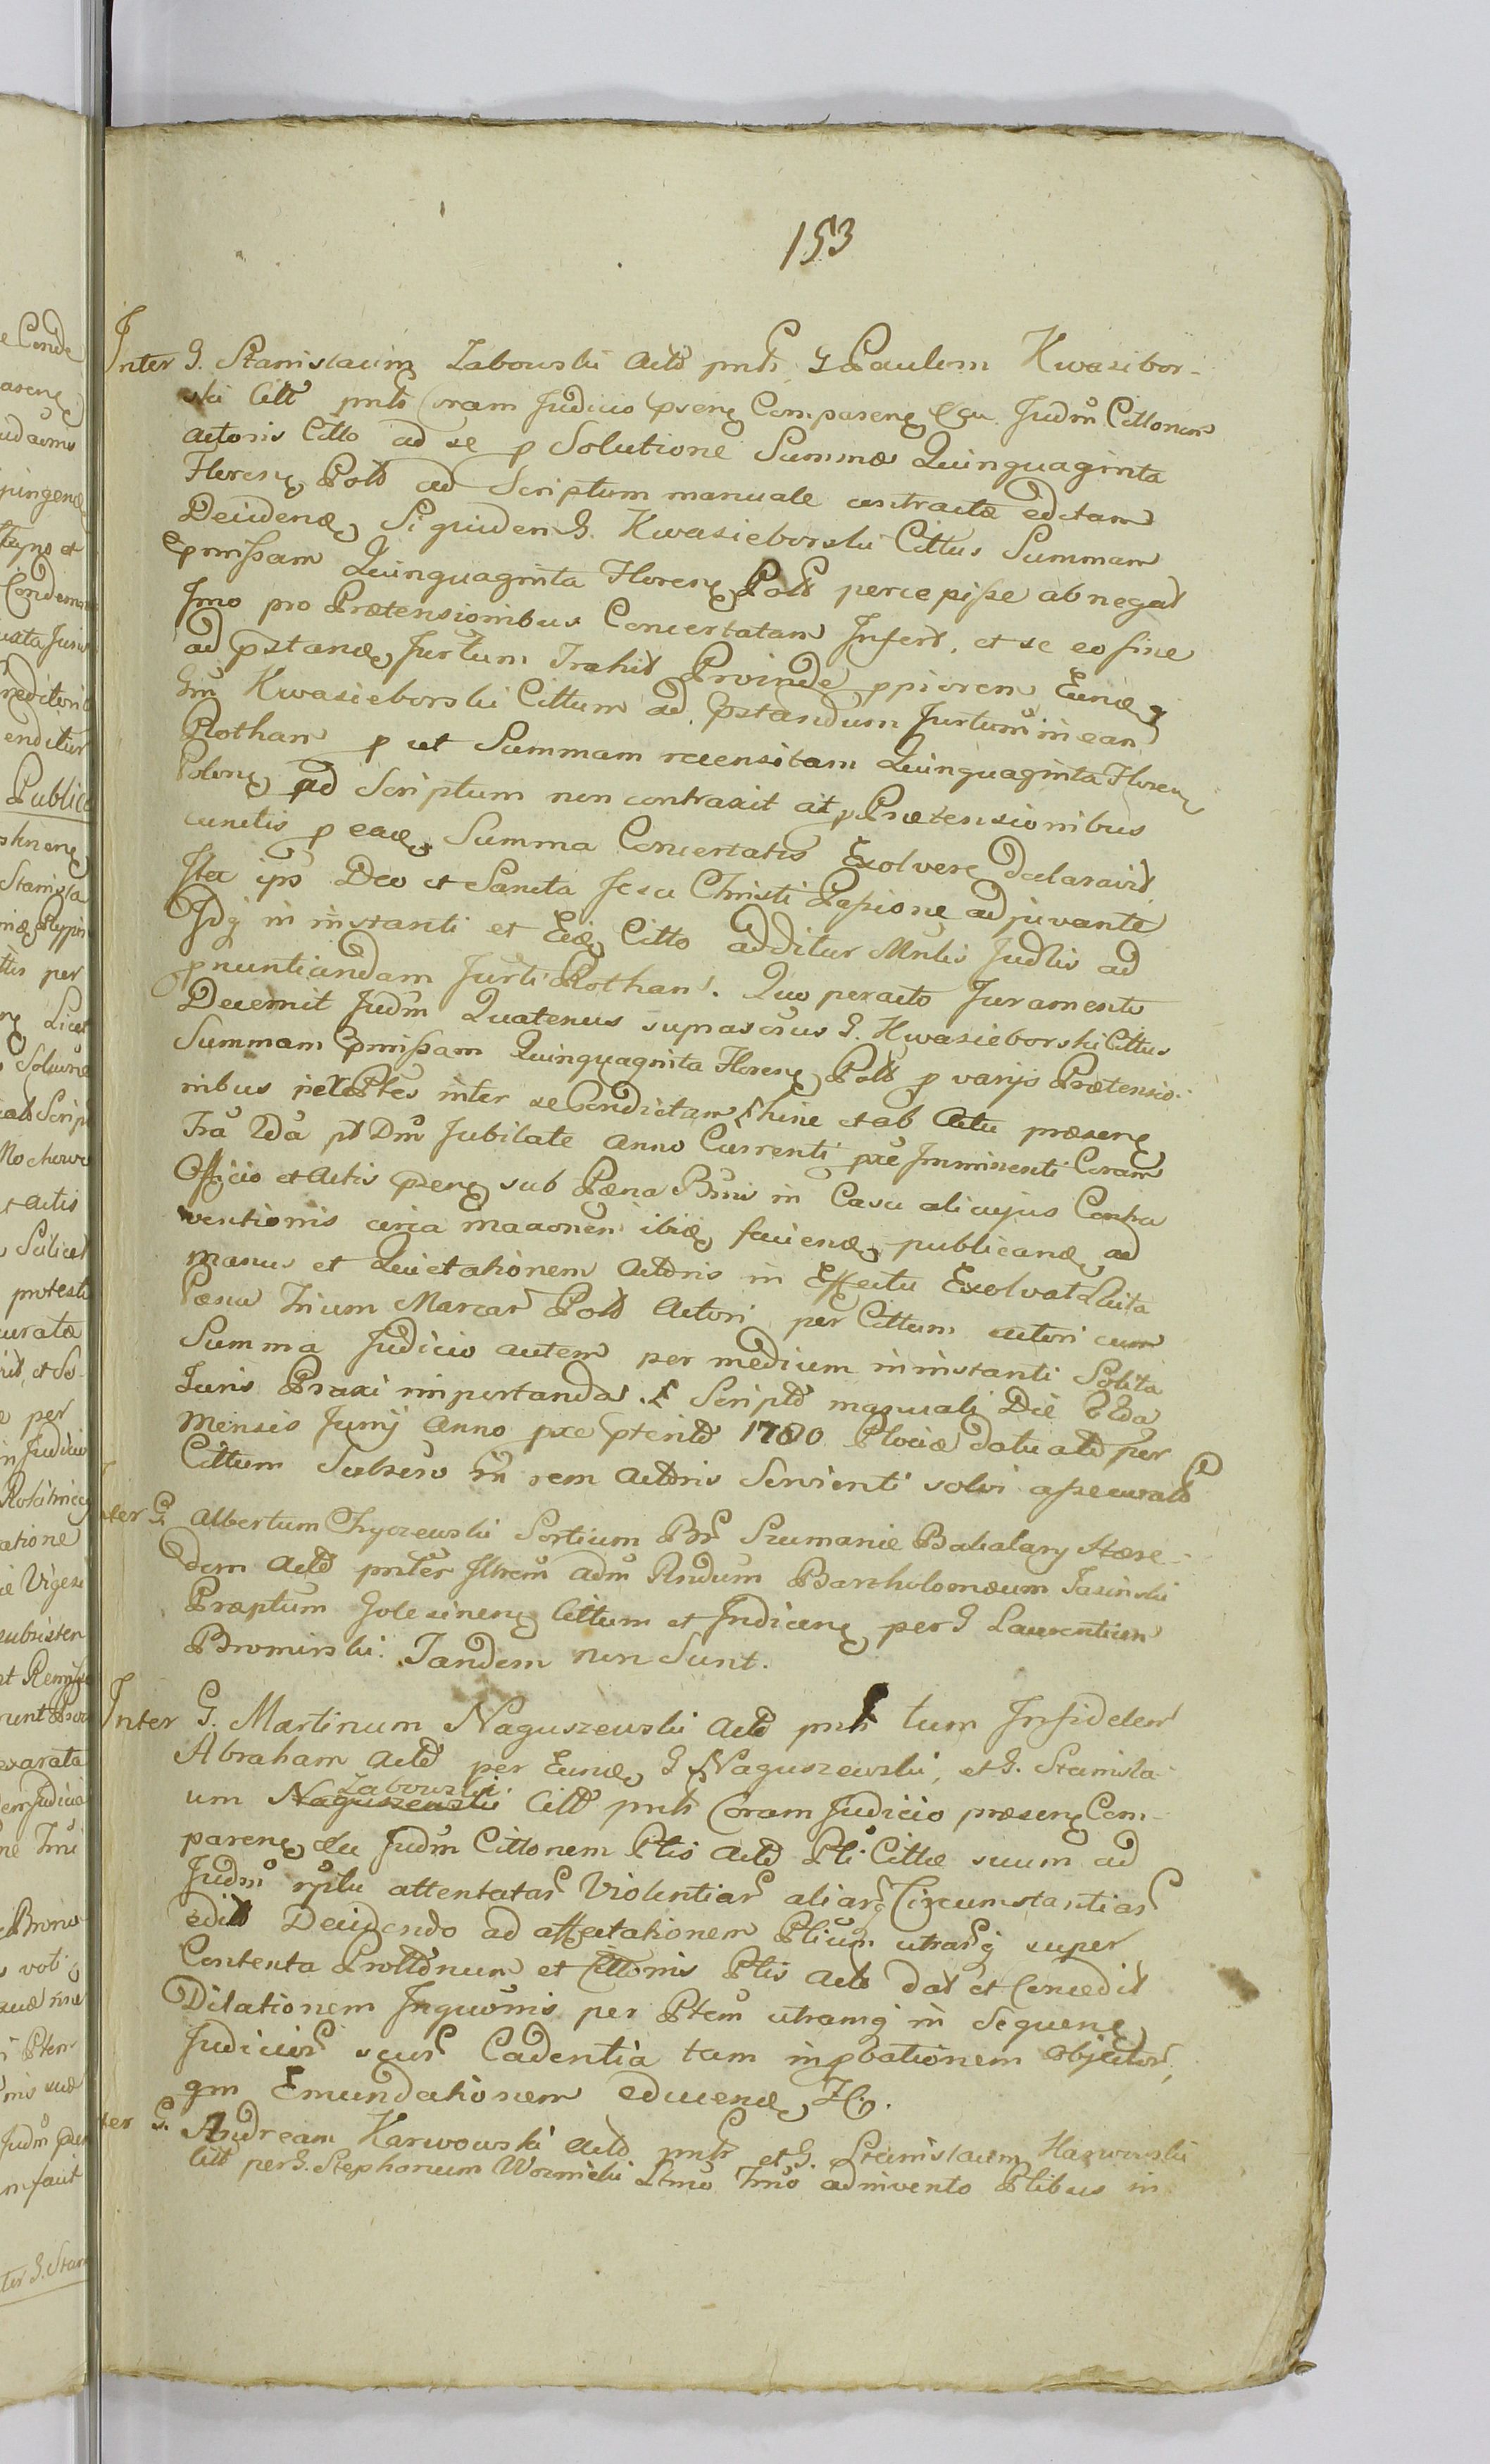 153
Inter G. Stanislaum Zabowski Actō pntē, G Paulum Kwasibor-
ski Cittē pntē Coram Judicio p̄senꝫ Comparenꝫ Exu. Judm̄ Cittonem
Actoris Citto ad se p Solutione Summæ Quinquaginta
Florenꝫ Polō ad Scriptum manuale contractæ editam
Decidenꝺ, Siquidem G. Kwasieborski Cittus Summam
p̄missam Quinquaginta Florenꝫ Polō percepisse abnegat
Imo pro Prætensionibus Concertatam Infert, et se eo fine
ad p̄stanꝺ Jurtum Trahit Proinde p̱piorem Eunꝺ G
Gm̄ Kwasieborski Cittum ad p̄standum Jurtum in eam
Rotham p ut Summam recensitam Quinquaginta Florenꝫ
Polonꝫ ad Scriptum non contraxit at p Prætensionibus
cunctis p eaꝺ Summa Concertatis Exolvere declaravit,
Ita ips Deo et Sancta Jesu Christi Passione adjuvante
Idq in instanti et Eiꝺ Citto additur Mnlis Judlis ad
p̱nuntiandam Jurti Rotham. Quo peracto Juramento
Decernit Judm̄ Quatenus suprascrus G. Kwasieborski Cittus
Summam p̄missam Quinquaginta Florenꝫ Polō p varijs Prætensio-
nibus inter Ptes inter se Condictam hinc et ab Actu præsenꝫ
Tra 2da pt Dm̄ Jubilate Anno Currenti pxē Imminenti Coram
Officio et Actis p̄senꝫ sub Pæna Bnis in Casu alicujus Contra
ventionis circa maaonem ibiꝺ facienꝺ, publicanꝺ ad
manus et Quietationem Actōris in Effectu Exolvat Luita
Pæna Trium Marcar Polō Actori per Cittum Actori cum
Summa Judicio autem per medium in instanti Solita
Juris Praxi importanda. Scriptō manuali Die 22da
Mensis Junij Anno pxē p̄teritō 1780 Plociæ datuatō per
Cittum Subser̄o In rem Actōris Servienti salvi assecuratō
ter G. Albertum Chyczewski Sortium Br̄ Szumanie Bakalary Hære-
dem Actō pntēr Illrem Adm̄ Rndum Bartholomæum Jasinski
Præptum Golesinenꝫ Cittum et Indicenꝫ per G Laurentium
Bromirski. Tandem non Sunt.
Inter G. Martinum Naguszewski Actō pntē tum Infidelem
Abraham Actō per Eunꝺ G Naguszewski, et G. Stanisla-
Zabowski
um Naguszewski Cittō pntē Coram Judicio præsenꝫ Com-
parenꝫ Exu Judm̄ Cittonem Ptis Actō Pti Cittæ suum ad
Judm̄ rptu attentatar Violentiar aliarq Circumstantiar
edit Decidendo ad affectationem Ptium utrarq super
Contenta Prottōnum et Cittonis Ptis Actō dat et Concedit
Dilationem Inquōnis per Ptem utramq in Sequenꝫ
Judicior seur Cadentia tam in pbationem objector,
qm Emundationem educenꝺ H.
ter G. Andream Karwowski Actō pntē et G. Stanislaum Karwowski
Cittō per G. Stephanum Woznicki Ltmo Tmo adinvento Ptibus in